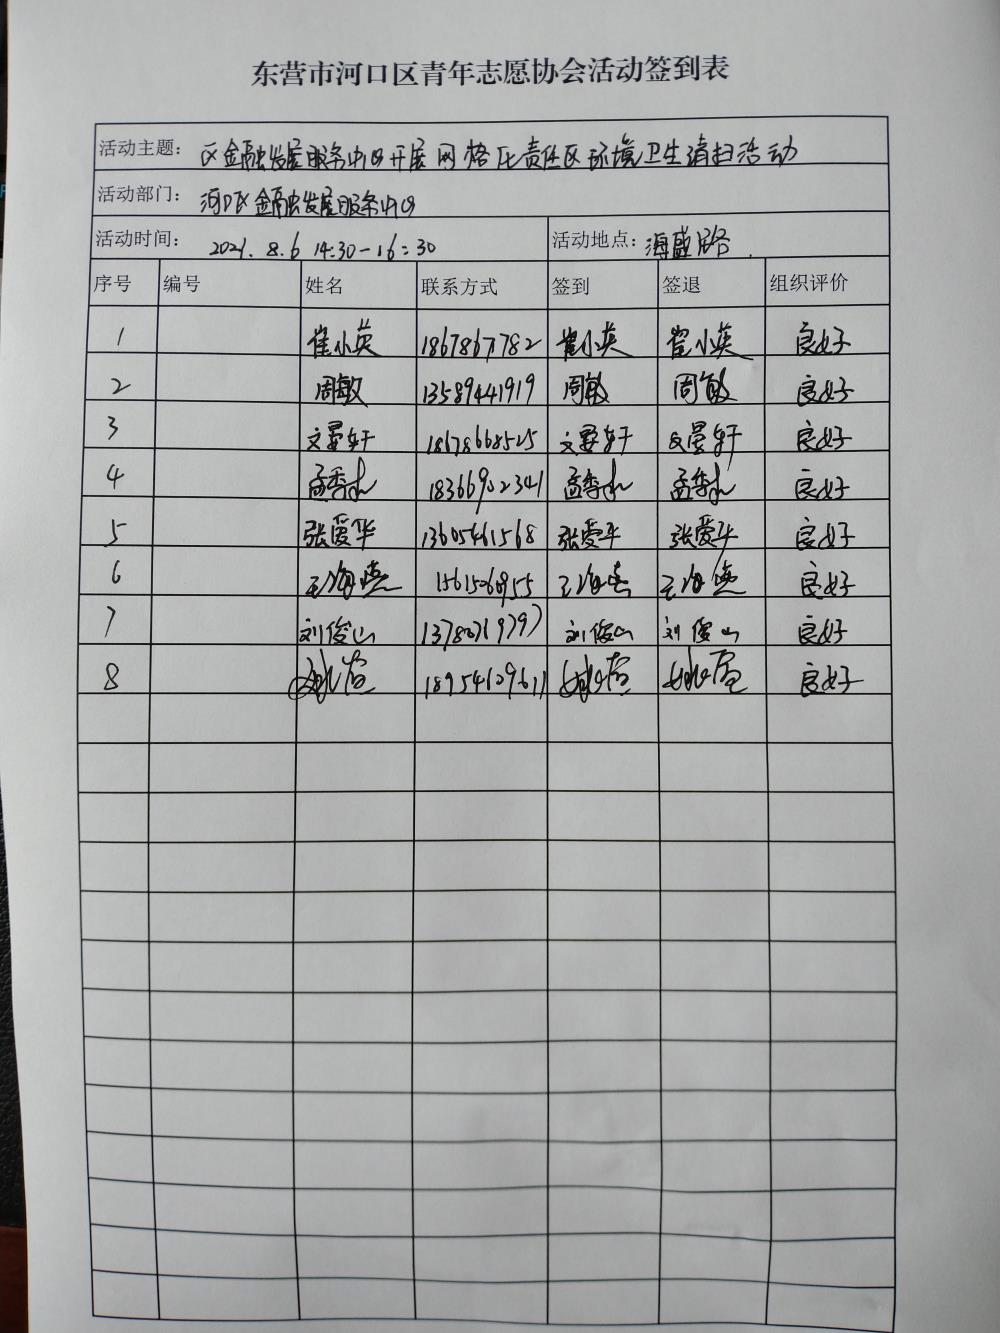 东营市河口区青年志愿协会活动签到表
活动主题： 区金融发展服务中心开展网格化责任区环境卫生清扫活动
活动部门： 河口区金融发展服务中心
活动时间： 2021.8.6 14:30-16:30 活动地点： 海盛路.
序号 编号 姓名 联系方式 签到 签退 组织评价
1 崔小英 18678671782 崔小英 崔小英 良好
2 周敏 13589441919 周敏 周敏 良好
3 文晏轩 18678668525 文晏轩 文晏轩 良好
4 孟季 18366902341 孟季 孟季 良好
5 张爱华 13605461568 张爱华 张爱华 良好
6 王海燕 王海燕 王海燕 良好
7 刘俊山 刘俊山 刘俊山 良好
8 良好